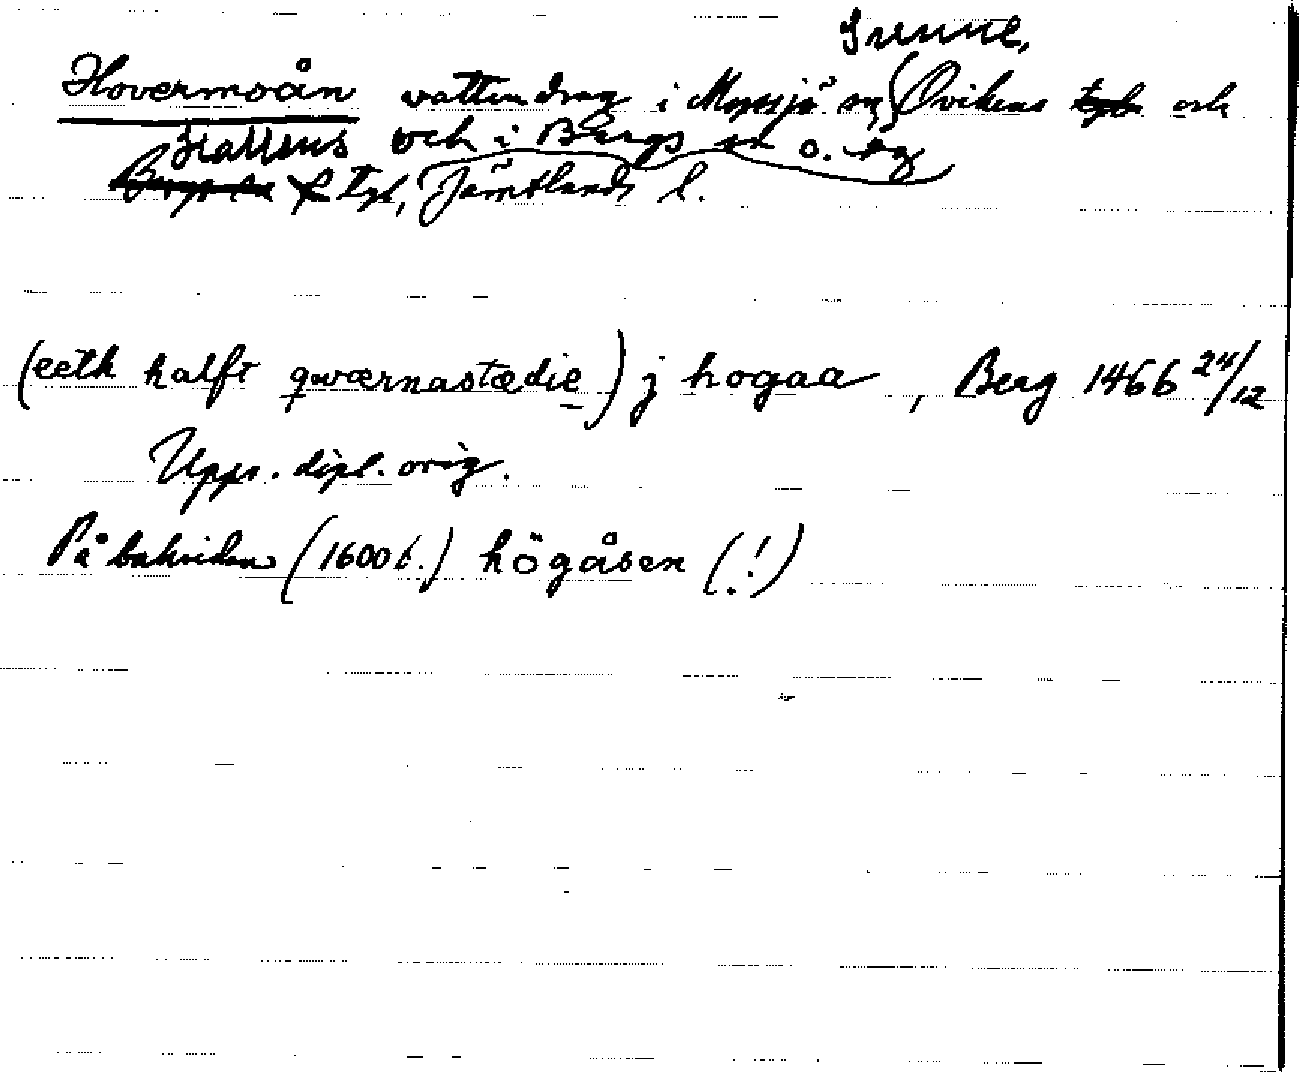 Sunne,
Hovermoån vattendrag i Myssjö sn, Ovikens och
Hallens och i Bergs sn o. tg
tgl, Jämtlands l.
(eeth halft qwærnastædie) j hogaa, Berg 1466 24/12
Upps. dipl. orig.
På baksidan (1600 t.) högåsen (!)